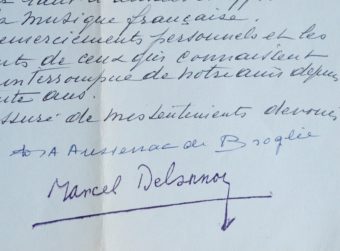 la musique française.
remerciements personnels et les
nts de ceux qui connaissent
interrompue de notre ami depuis
nte ans.
ssuré de mes sentiments dévoués
de Broglie
Marcel Delannoy